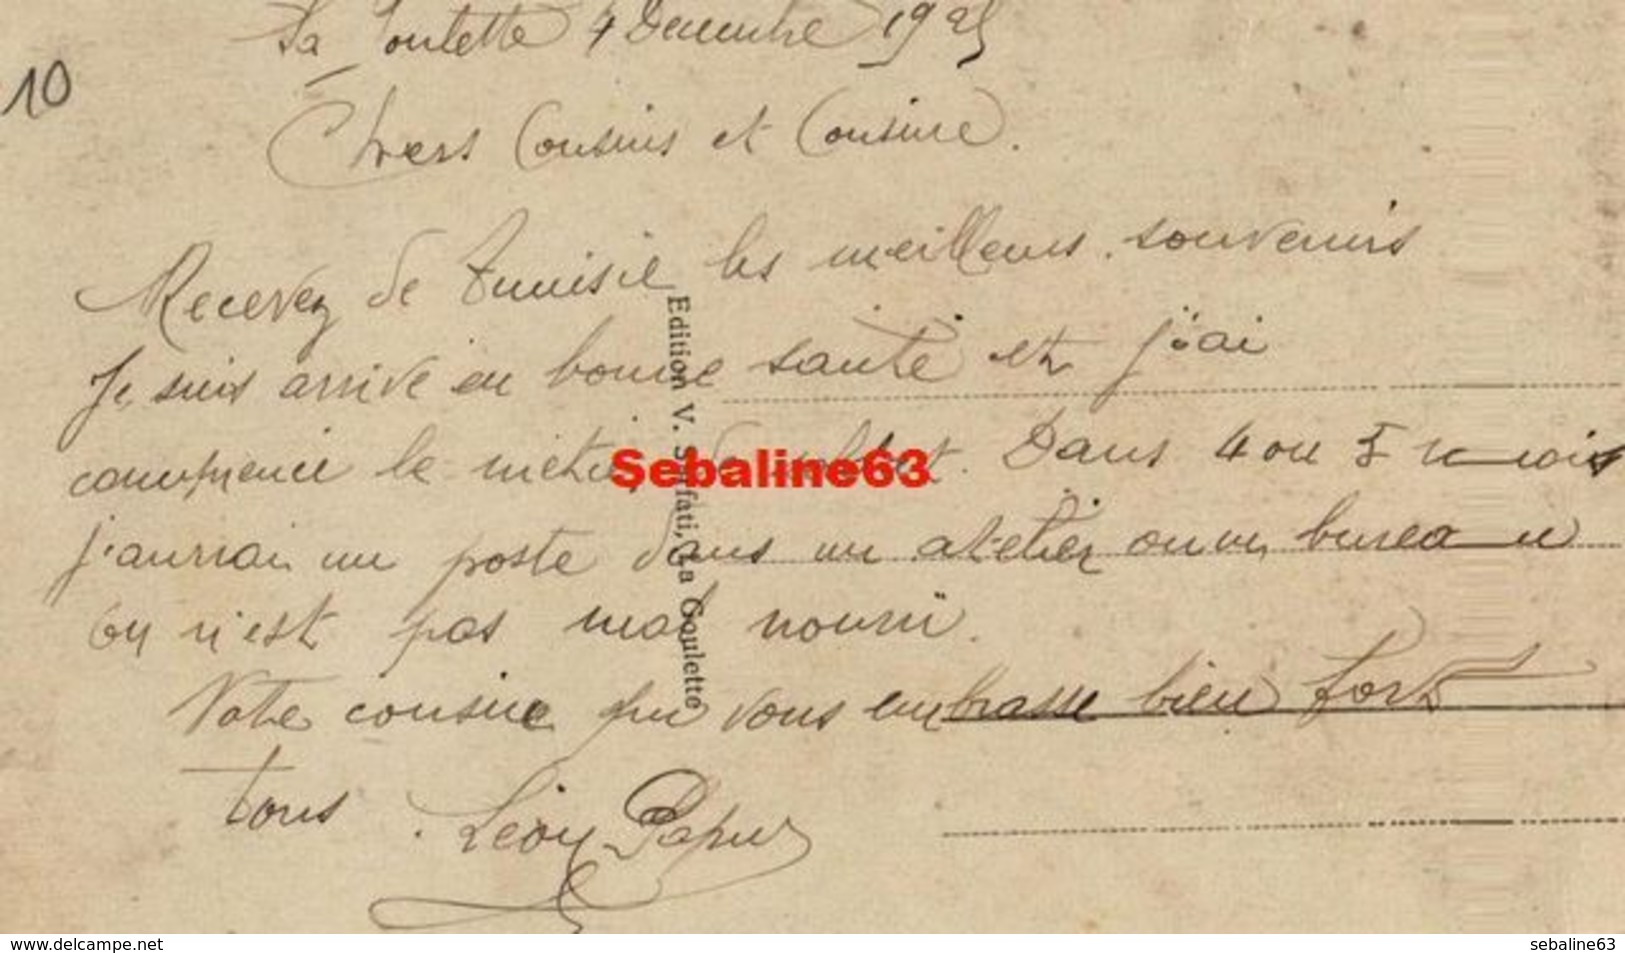 La Goulette 4 Decembre 1925
10
Chers Cousins et Cousine.
Recevez de Tunisie les meilleurs souvenirs
Je suis arrivé en bonne santé et j'ai
commencé le métier de soldat. Dans 4 ou 5 mois
j'aurrai un poste dans un atelier ou un bureau
on n'est pas mal nourri.
Votre cousin qui vous embrasse bien fort
tous. Léon
Edition V. S fati, La Goulette
Sebaline63
www.delcampe.net
sebaline63